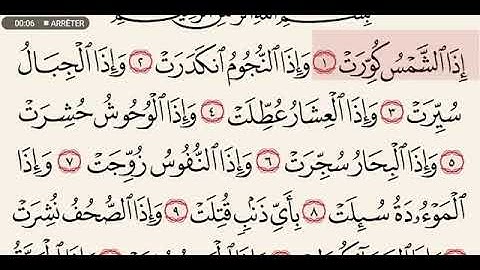 00:06 ■ ARRÊTER
بِسْمِ ٱللَّهِ ٱلرَّحْمَٰنِ ٱلرَّحِيمِ
إِذَا ٱلشَّمْسُ كُوِّرَتْ ١ وَإِذَا ٱلنُّجُومُ ٱنكَدَرَتْ ٢ وَإِذَا ٱلْجِبَالُ
سُيِّرَتْ ٣ وَإِذَا ٱلْعِشَارُ عُطِّلَتْ ٤ وَإِذَا ٱلْوُحُوشُ حُشِرَتْ
٥ وَإِذَا ٱلْبِحَارُ سُجِّرَتْ ٦ وَإِذَا ٱلنُّفُوسُ زُوِّجَتْ ٧ وَإِذَا
ٱلْمَوْءُۥدَةُ سُئِلَتْ ٨ بِأَيِّ ذَنۢبٍ قُتِلَتْ ٩ وَإِذَا ٱلصُّحُفُ نُشِرَتْ